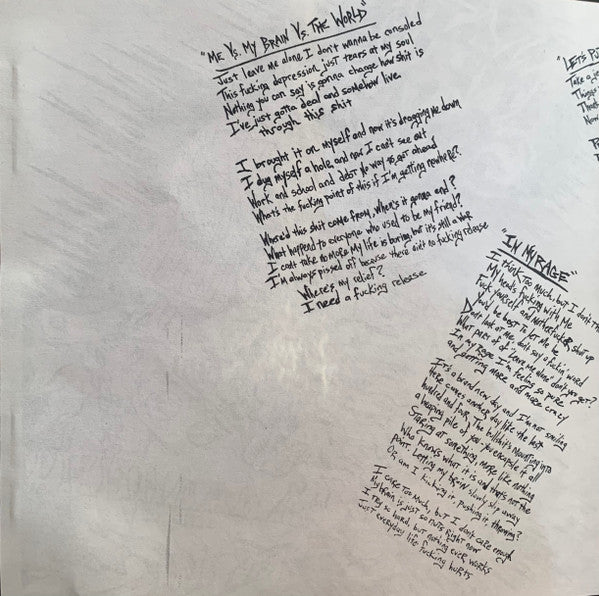 "ME Vs. MY BRAIN Vs. THE WORLD"
Just leave me alone I don't wanna be consoled
This fucking depression just tears at my soul
Nothing you can say is gonna change how shit is
I've just gotta deal and somehow live
through this shit
I brought it on myself and now it's dragging me down
I dug myself a hole and now I can't see out
Work and school and debt No way to get ahead
What's the fucking point of this if I'm getting nowhere?
Where'd this shit come from, where's it gonna end?
What happend to everyone who used to be my friend?
I can't take no more My life is boring, but it's still a war
I'm always pissed off because there ain't no fucking release
Where's my relief?
I need a fucking release
"LETS PU
Take a je
Things
That
Now
"IN MY RAGE"
I think too much, but I don't th
My heads fucking with me
Fuck yourself and motherfucker, shut up
You'd be best to let me be
Don't look at me, don't say a fuckin' word
What part of "Leave me alone" don't you get?
In my Rage I'm feeling so pure
and getting more and more crazy
It's a brand new day and I'm not smiling
Here comes another day like the last
hundred and four, The bullshit's mounting into
a heaping pile of you to escape it all
Staring at something, more like nothing
Who knows what it is and that's not the
point. Letting my brain slowly slip away
Or am I kicking it, pushing it, throwing?
I care too much, but I don't care enough
My brain is just so nuts right now
I try so hard, but nothing ever works
Just everyday life fucking hurts